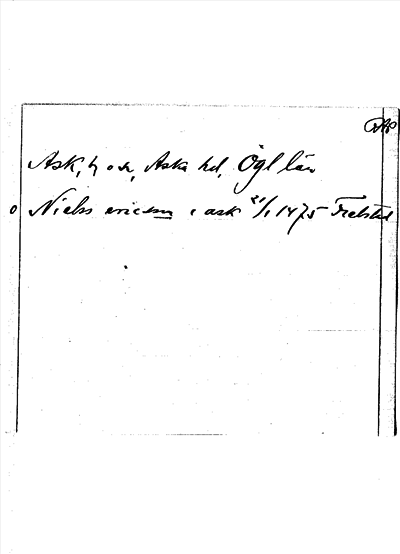 RAP
Ask, by o sn, Aska hd, Ögl län
o Niels ericsson i ask 21/1 1475